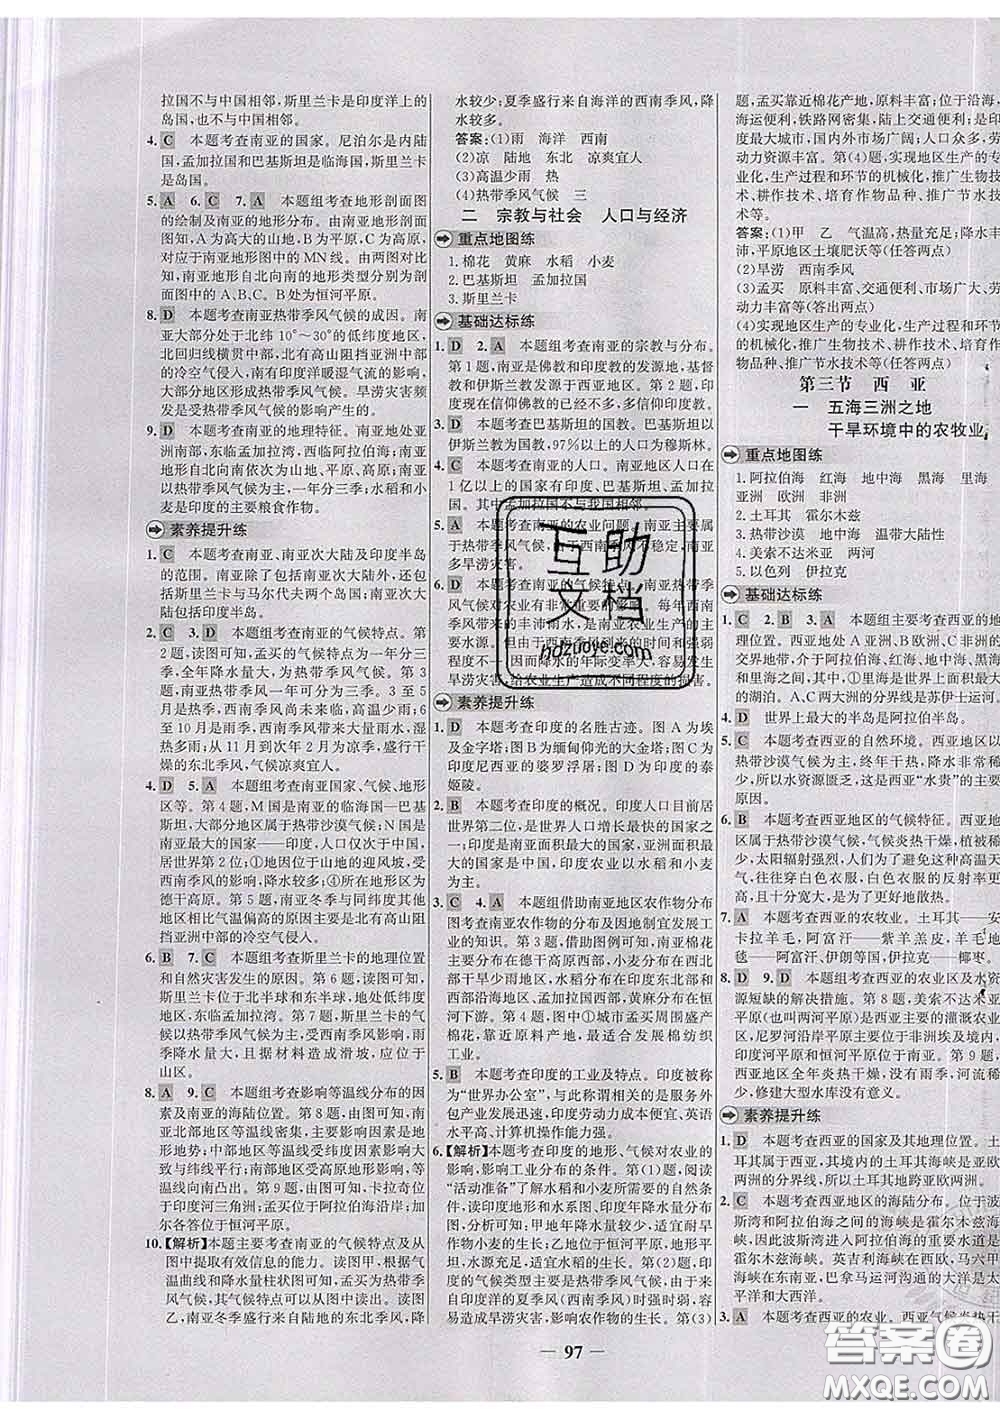 拉国不与中国相邻,斯里兰卡是印度洋上的
岛国,也不与中国相邻。
4. C 本题考查南亚的国家。尼泊尔是内陆
国,孟加拉国和巴基斯坦是临海国,斯里兰卡
是岛国。
5. A 6. C 7. A 本题组考查地形剖面图
的绘制及南亚的地形分布。由南亚地形剖面
图知,A为高大的山地,B为平原,C为高原,
对应于南亚地形图中的MN线。由两图对比
可知,南亚地形自北向南的地形类型分别为剖
面图中的A、B、C。B处为恒河平原。
8. D 本题考查南亚热带季风气候的成因。南
亚大部分处于北纬10°～30°的低纬度地区,
北回归线横贯中部,北有高山阻挡亚洲中部
的冷空气侵入,南有印度洋暖湿气流的影响,
因此形成热带季风气候。旱涝灾害的频繁
发是受热带季风气候的影响产生的。
9. D 本题考查南亚的地理特征。南亚地处亚
洲南部,东临孟加拉湾,西临阿拉伯海;地形
自北向南依次为山地、平原和高原三大部分;
气候以热带季风气候为主,一年分三季;水稻和
小麦是印度的主要粮食作物。
素养提升练
1. C 本题考查南亚、南亚次大陆及印度半岛
的范围。南亚除了包括南亚次大陆外,还包
括斯里兰卡与马尔代夫两个岛国。南亚次大
陆包括印度半岛。
2. C 3. D 本题组考查南亚的气候特点。第
2题,读图可知,孟买的气候特点为一年分三
季,全年降水量大,为热带季风气候。第3
题,南亚热带季风气候一年分三季。3至5
月是热季,西南季风尚未来临,高温少雨;6
月至10月是雨季,西南季风带来大量雨水,湿
热多雨;从11月到次年2月为凉季,盛行干
燥的东北季风,气候凉爽宜人。
4. D 5. A 本题组考查南亚国家、气候、地形
区等。第4题,M国是南亚的临海国—巴基
斯坦,大部分地区属于热带沙漠气候;N国是
南亚最大的国家——印度,人口仅次于中国,
居世界第2位;①地因位于山地的迎风坡,受
西南季风的影响,降水较多;④所在的高原为
德干高原。第5题,南亚冬季与同纬度其他
地区相比气温偏高的原因主要是北有高山阻
挡亚洲中部的冷空气侵入。
6. B 7. C 本题组考查斯里兰卡的地理位置
和自然灾害发生的原因。第6题,读图可知,
斯里兰卡位于北半球和东半球,地处低纬度
地区,东临孟加拉湾。第7题,斯里兰卡的气
候以热带季风气候为主,受西南季风影响,雨
季降水量大,且图例材料造成滑坡,应位于
山区。
8. A 9. C 本题组考查影响等温线分布的因
素及南亚的海陆位置。第8题,由图可知,南
亚北部地区等温线密集,主要影响因素是
地形地势;中部地区等温线大致与纬线平行;南部地区受海洋影响
等温线向南凸出。第9题,由图可知,卡拉奇位
于印度河三角洲;孟买位于阿拉伯海沿岸;加
尔各答位于恒河平原。
10.【解析】本题主要考查南亚的气候特点及从
图中提取有效信息的能力。读图甲,根据气
温曲线和降水量柱状图可知,孟买为热带季
风气候,一年分三季,具体从图中读出。读图
乙,南亚冬季盛行来自大陆的东北季风,降
水较少;夏季盛行来自海洋的西南季风,降
水较多。
答案:(1)雨 海洋 西南
(2)凉 陆地 东北 凉爽宜人
(3)高温少雨 热
(4)热带季风气候 三
二 宗教与社会 人口与经济
重点地图练
1. 棉花 黄麻 水稻 小麦
2. 巴基斯坦 孟加拉国
3. 斯里兰卡
基础达标练
1. D 2. A 本题组考查南亚的宗教与分布。
第1题,南亚是佛教和印度教的发源地,基督
教和伊斯兰教发源于西亚地区。第2题,印
度现在信仰佛教的已不多,多数信仰印度教。
3. D 本题考查巴基斯坦的国教。巴基斯坦以
伊斯兰教为国教,97%以上的人口为穆斯林。
4. C 本题考查南亚的人口。南亚地区人口在
1亿以上的国家有印度、巴基斯坦、孟加拉
国。其中孟加拉国不与我国相邻。
5. A 本题考查南亚的农业问题。南亚主要属
于热带季风气候,由于西南季风不稳定,南亚
多旱涝灾害。
6. D 本题考查南亚的气候特点。南亚热带季
风气候对农业有非常重要的影响。每年西
南季风的丰沛雨水,是南亚农业生产的主要
水源,但由于西南季风到来的时间和强弱
程度不一,因而降水的年际变率大,容易发生
旱涝灾害,给农业生产造成不同程度的损害。
素养提升练
1. D 本题考查印度的名胜古迹。图A为埃
及金字塔;图B为缅甸仰光的大金塔;图C为
印度尼西亚的婆罗浮屠;图D为印度的泰
姬陵。
2. B 本题考查印度的概况。印度人口目前居
世界第二位,是世界人口增长最快的国家之
一;印度是南亚面积最大的国家,亚洲面积最
大的国家是中国,印度农业以水稻和小麦
为主。
3. C 4. A 本题组借助南亚地区农作物分布
图考查南亚农作物的分布及因地制宜发展工
业的知识。第3题,借助图例可知,南亚棉花
主要分布在德干高原西部,小麦分布在西北部
干旱少雨地区,水稻分布在印度东北部和
沿海地区、恒河下游,黄麻分布在恒
河下游。第4题,图中①城市孟买周围盛产
棉花,靠近原料产地,适合发展棉纺织
工业。
5. B 本题考查印度的工业及特点。印度被称
为“世界办公室”,与此称谓相关的是服务外
包产业发展迅速,印度劳动力成本便宜、英语
水平高、计算机操作能力强。
6.【解析】本题考查印度的地形、气候对农业的
影响,影响工业分布的条件。第(1)题,阅读
“活动准备”了解水稻和小麦的适宜生长条
件,读印度地形和水系图、印度年降水量分布
图,分析可知:甲地年降水量少,适宜耐旱
作物小麦的生长;乙地位于恒河平原,地形平
坦,水源充足,适宜水稻的生长。第(2)题,印
度的气候类型主要是热带季风气候,每年西
南季风来得早晚和强弱影响其降水量,容
易造成旱涝灾害,影响农作物的生长。第(3)
题,孟买靠近棉花产地,原料丰富;位于沿海,
海运便利,铁路网密集,陆上交通便利;是印
度最大城市,国内外市场广阔;人口众多,劳
动力资源丰富。第(4)题,实现地区生产的专
业化,生产过程的机械化,推广生物技
术、耕作技术,培育作物品种,推广节水
技术等。
答案:(1)甲 乙 气温高,热量充足;降水丰
沛,平原地区土壤肥沃等(任答两点)
(2)旱涝 西南季风
(3)孟买 原料丰富、交通便利、市场广大、劳
动力丰富等(答出两点)
(4)实现地区生产的专业化,生产过程
的机械化,推广生物技术、耕作技术,培育作物
品种,推广节水技术等(任答两点)
第三节 西亚
一 五海三洲之地
干旱环境中的农牧业
重点地图练
1. 阿拉伯海 红海 地中海 黑海 里海
亚洲 欧洲 非洲
2. 土耳其 霍尔木兹
3. 热带沙漠 地中海 温带大陆性
4. 美索不达米亚 两河
5. 以色列 伊拉克
基础达标练
1. C 2. B 3. A 本题组考查西亚的地
理位置。西亚地处A亚洲、B欧洲、C非洲的
交界地带,介于阿拉伯海、红海、地中海、黑海
和里海之间,其中,①里海是世界上面积最大
的湖泊。A、C两大洲的分界线是苏伊士运河。
4. D 世界上最大的半岛是阿拉伯半岛。
5. C 本题考查西亚的自然环境。西亚地区以
热带沙漠气候为主,终年干热,降水稀少,
所以水资源匮乏,这是西亚“水贵”的主要
原因。
6. B 本题考查西亚地区的气候特征。西亚地
处热带沙漠气候,气候炎热干燥,
太阳辐射强烈,人们为了避免这种高温天
气,往往穿白色衣服。白色衣服的反射率更
高,且十分宽大,是为了更好地散热。
7. A 本题考查西亚的农牧业。土耳其——安
卡拉羊毛,阿富汗——紫羊羔皮,羊毛地
毯——阿富汗、伊朗等国,伊拉克——椰枣。
8. D 9. D 本题组考查西亚的农业区及水资
源短缺的解决措施。第8题,美索不达米亚
平原(也叫两河平原)是西亚主要的灌溉农业
区,尼罗河沿岸平原主要位于非洲埃及境内,
印度河平原和恒河平原位于南亚。第9题,
西亚地区气候干旱,降水少,河流稀
少,修建大型水库没有意义。
素养提升练
1. D 本题考查西亚的国家及其地理位置。土
耳其属于西亚,其境内的土耳其海峡是亚欧
两洲的分界线,所以土耳其地跨亚欧两洲。
2. C 本题考查西亚地区的海陆分布。位于波
斯湾和阿拉伯海的海峡是霍尔木兹海峡,
波斯湾进入阿拉伯海的重要水道是霍
尔木兹海峡。英吉利海峡在西欧,马六甲
海峡在东南亚,巴拿马运河沟通的大洋是太
平洋和大西洋。
3. A 本题考查西亚的农业。西亚气候炎热干
97
互助
文档
hdzuoye.com
答案圈
MXQE.COM